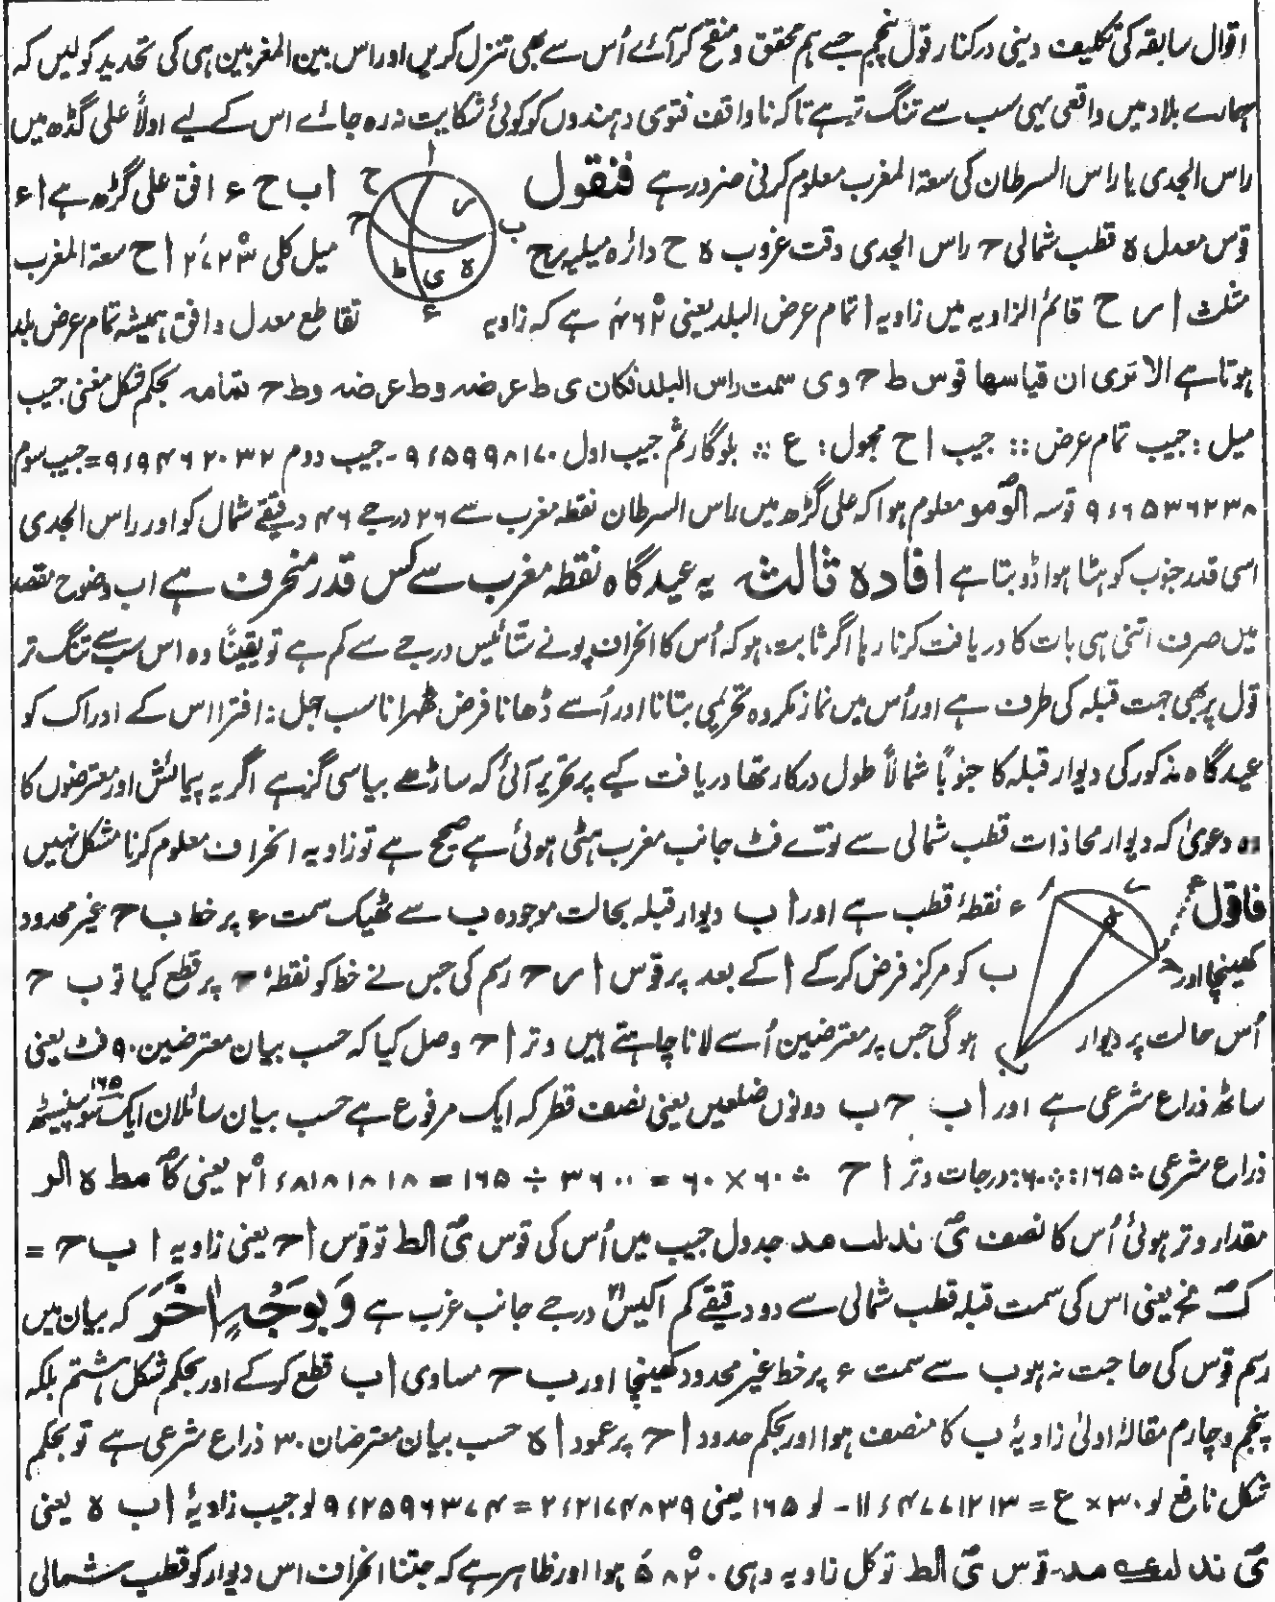 اقوال سابقہ کی تکلیف دینی درکنار قول پنجم جسے ہم محقق و منقح کر آئے اُس سے بھی تنزل کریں اور اس بین المغربین ہی کی تحدید کو لیں کہ
ہمارے بلاد میں واقعی یہی سب سے تنگ تر ہے تاکہ ناواقف فتوی دہندوں کو کوئی شکایت نہ رہ جائے اس کے لیے اولاً علی گڈھ میں
راس الجدی یا راس السرطان کی سعۃ المغرب معلوم کرنی ضرور ہے فنقول ا ب ح ء افق علی گڑھ ہے ا ء
قوس معدل ہ قطب شمالی ح راس الجدی وقت غروب ہ ح دائرہ میلیہ ر ح میل کلی ۲۳ْ ۲۷َ ا ح سعۃ المغرب
مثلث ا ر ح قائم الزاویہ میں زاویہ ا تمام عرض البلد یعنی ۶۲ْ ۴َ ہے کہ زاویہ تقاطع معدل و افق ہمیشہ تمام عرض بلد
ہوتا ہے الا تری ان قیاسھا قوس ط ح و ی سمت راس البلد فکان ی ط عرضہ و ط ع عرضہ و ط ح تمامہ بحکم شکل مغنی جیب
میل : جیب تمام عرض :: جیب ا ح مجہول : ع ∴ بلوگارثم جیب اول ۹ء۵۹۹۸۱۷۰ - جیب دوم ۹ء۹۴۶۲۰۳۲ = جیب سوم
۹ء۶۵۳۶۲۳۸ قوسہ الومو معلوم ہوا کہ علی گڑھ میں راس السرطان نقطہ مغرب سے ۲۶ درجے ۴۶ دقیقے شمال کو اور راس الجدی
اسی قدر جنوب کو ہٹا ہوا ڈوبتا ہے افادہ ثالثہ یہ عیدگاہ نقطہ مغرب سے کس قدر منحرف ہے اب وضوح مقصد
میں صرف اتنی ہی بات کا دریافت کرنا رہا اگر ثابت ہو کہ اُس کا انحراف پونے ستائیس درجے سے کم ہے تو یقیناً وہ اس سب سے تنگ تر
قول پر بھی جہت قبلہ کی طرف ہے اور اُس میں نماز مکروہ تحریمی بتانا اور اُسے ڈھانا فرض ٹھہرانا سب جہل و افترا اس کے ادراک کو
عیدگاہ مذکور کی دیوار قبلہ کا جنوباً شمالاً طول درکار تھا دریافت کیے پر تحریر آئی کہ ساڑھے بیاسی گز ہے اگر یہ پیمائش اور معترضوں کا
وہ دعویٰ کہ دیوار محاذات قطب شمالی سے نوّے فٹ جانب مغرب ہٹی ہوئی ہے صحیح ہے تو زاویہ انحراف معلوم کرنا مشکل نہیں
فاقول ء نقطۂ قطب ہے اور ا ب دیوار قبلہ بحالت موجودہ ب سے ٹھیک سمت ء پر خط ب ح غیر محدود
کھینچا اور ب کو مرکز فرض کرکے ا کے بعد پر قوس ا ر ح رسم کی جس نے خط کو نقطۂ ح پر قطع کیا تو ب ح
اُس حالت پر دیوار ہوگی جس پر معترضین اُسے لانا چاہتے ہیں وتر ا ح وصل کیا کہ حسب بیان معترضین ۹۰ فٹ یعنی
ساٹھ ذراع شرعی ہے اور ا ب ح ب دونوں ضلعیں یعنی نصف قطر کہ ایک مرفوع ہے حسب بیان سائلان ایک سو پینسٹھ ۱۶۵
ذراع شرعی ∴ ۱۶۵ : ۶۰ :: ۶۰ : درجات وتر ا ح ∴ ۶۰ × ۶۰ = ۳۶۰۰ ÷ ۱۶۵ = ۲۱ْء۸۱۸۱۸۱۸ یعنی کا مط ہ الر
مقدار وتر ہوئی اُس کا نصف ی ند لب مد جدول جیب میں اُس کی قوس ی الط تو قوس ا ح یعنی زاویہ ا ب ح =
ک نح یعنی اس کی سمت قبلہ قطب شمالی سے دو دقیقے کم اکیس درجے جانب غرب ہے وبوجہ اٰخر کہ بیان میں
رسم قوس کی حاجت نہ ہو ب سے سمت ء پر خط غیر محدود کھینچا اور ب ح مساوی ا ب قطع کرکے اور بحکم شکل ہشتم بلکہ
پنجم و چہارم مقالۂ اولیٰ زاویۂ ب کا منصف ہوا اور بحکم حدود ا ح پر عمود ا ہ حسب بیان معترضان ۳۰ ذراع شرعی ہے تو بحکم
شکل نافع لو ۳۰ × ع = ۱۱ء۴۷۷۱۲۱۳ - لو ۱۶۵ یعنی ۲ء۲۱۷۴۸۳۹ = ۹ء۲۵۹۶۳۷۴ لو جیب زاویۂ ا ب ہ یعنی
ی ند مد قوس ی الط تو کل زاویہ وہی ۲۰ْ ۵۸َ ہوا اور ظاہر ہے کہ جتنا انحراف اس دیوار کو قطب شمالی